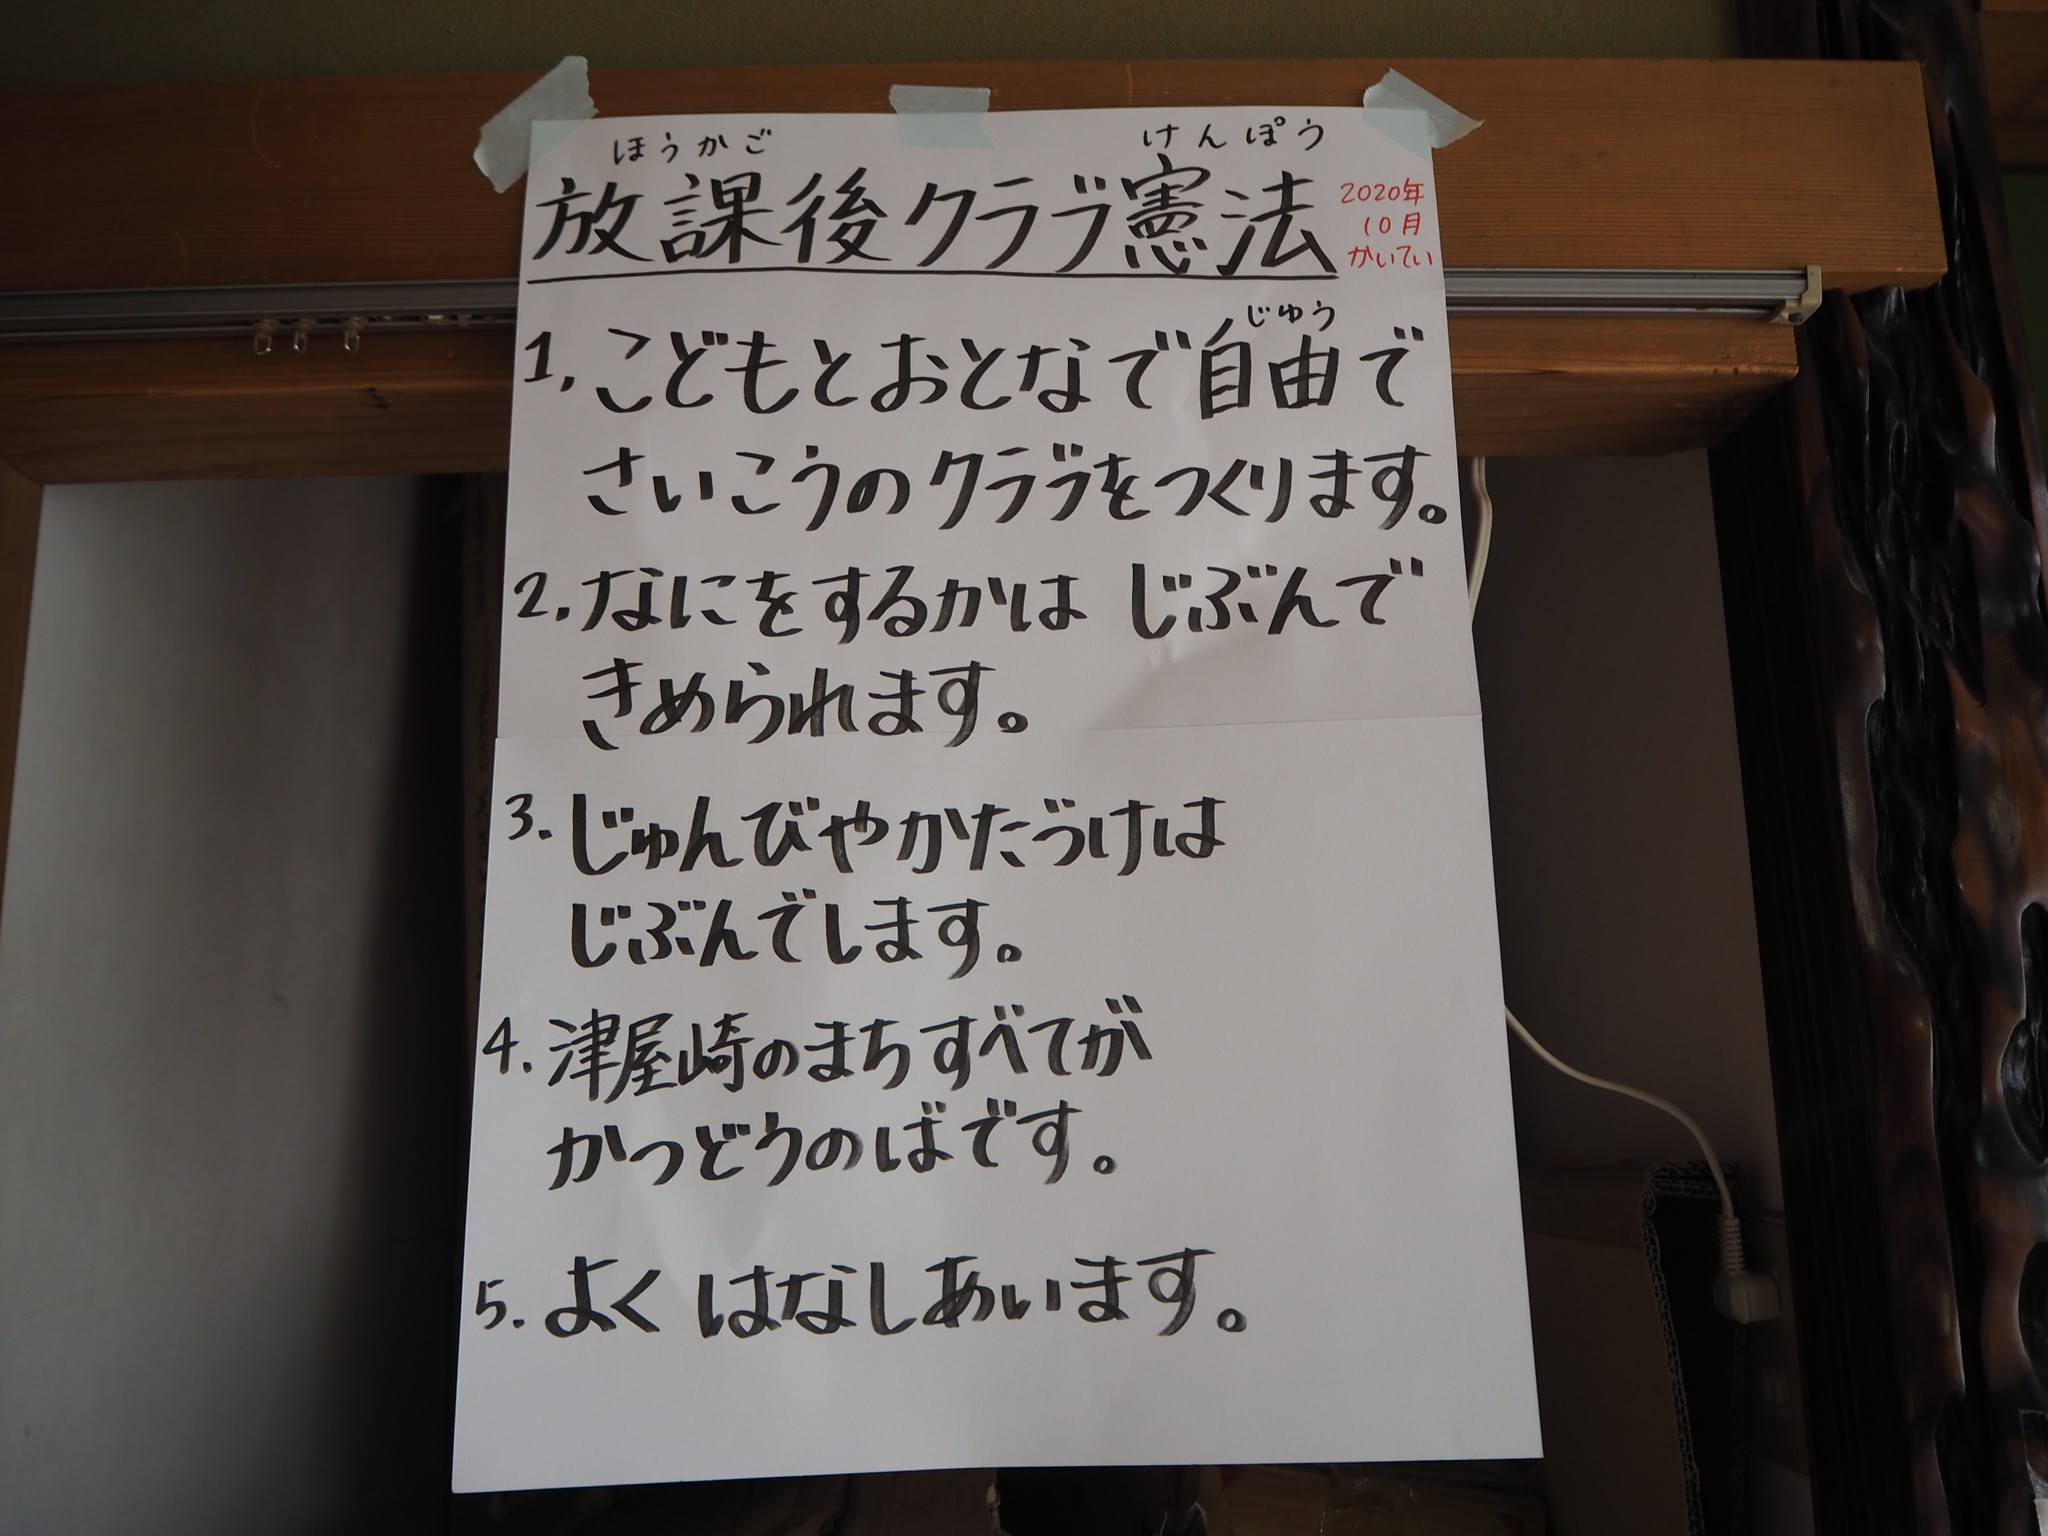 ほうかご けんぽう
放課後クラブ憲法
2020年
10月
かいてい
じゆう
1. こどもとおとなで自由で
さいこうのクラブをつくります。
2. なにをするかは じぶんで
きめられます。
3. じゅんびやかたづけは
じぶんでします。
4. 津屋崎のまちすべてが
かつどうのばです。
5. よく はなしあいます。